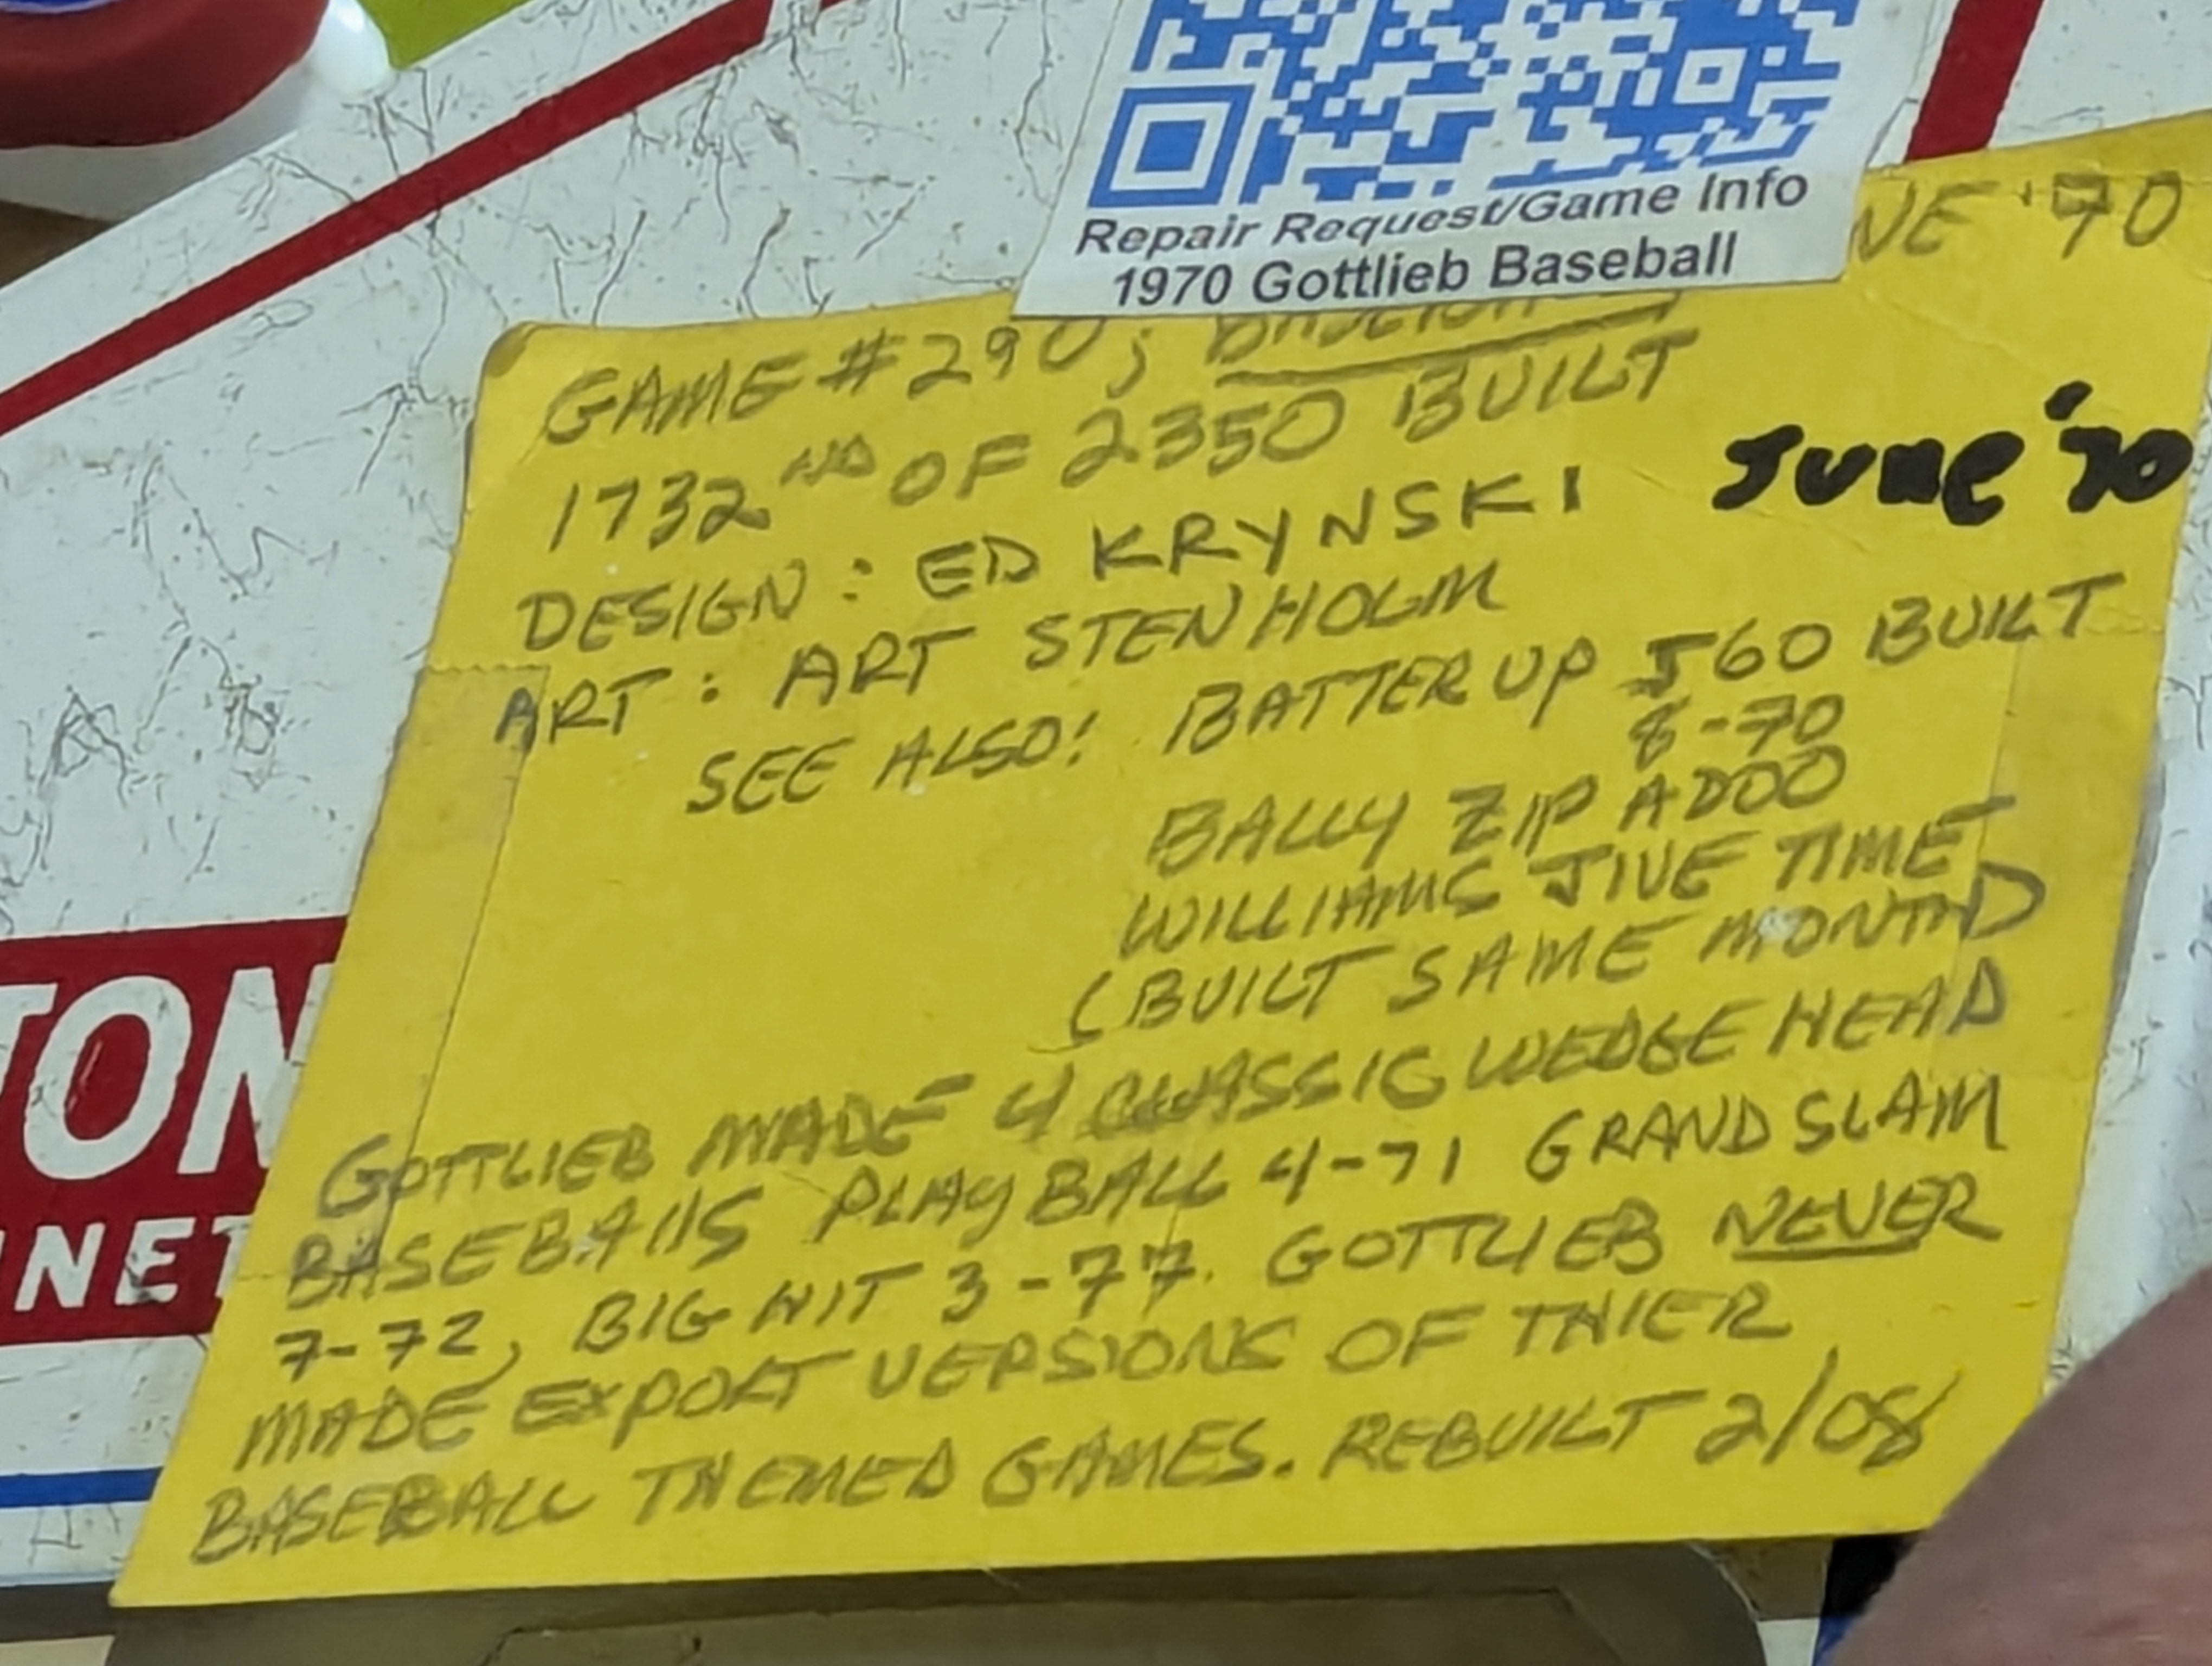 Repair Request/Game Info
1970 Gottlieb Baseball
NE '70
GAME #290; BASEBALL
1732ND OF 2350 BUILT
JUNE '70
DESIGN: ED KRYNSKI
ART: ART STENHOLM
SEE ALSO! BATTER UP 560 BUILT
8-70
BALLY ZIP A DOO
WILLIAMS JIVE TIME
(BUILT SAME MONTH)
GOTTLIEB MADE 4 CLASSIC WEDGE HEAD
BASEBAllS PLAY BALL 4-71 GRAND SLAM
7-72, BIG HIT 3-77. GOTTLIEB NEVER
MADE EXPORT VERSIONS OF THIER
BASEBALL THEMED GAMES. REBUILT 2/08
TON
NET